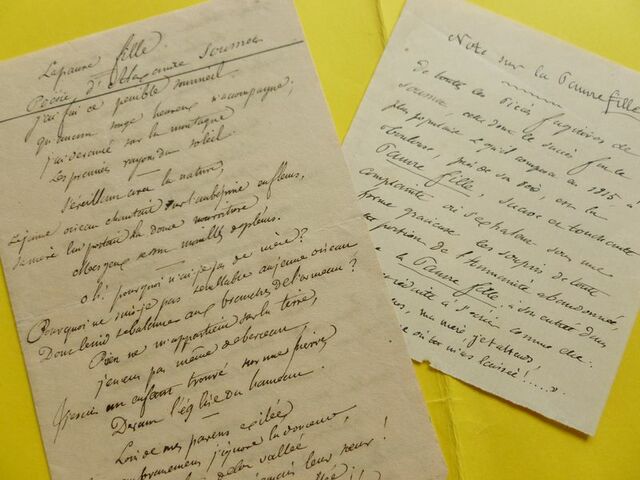 La pauvre fille
Poésie d'Alexandre Soumet
J'ai fui ce pénible sommeil
qu'aucun songe heureux n'accompagne;
j'ai devancé sur la montagne
Les premiers rayons du soleil.
S'éveillant avec la nature,
Le jeune oiseau chantait sur l'aubépine en fleurs,
Sa mère lui portait la douce nourriture
Mes yeux se sont mouillés de pleurs.
Oh! pourquoi n'ai-je pas de mère?
Pourquoi ne suis-je pas semblable au jeune oiseau
Dont le nid se balance aux branches de l'ormeau?
Rien ne m'appartient sur la terre,
je n'eus pas même de berceau
Et je suis un enfant trouvé sur une pierre
Devant l'église du hameau.
Loin de mes parens exilée
j'ignore la douceur,
de la vallée
leur sœur!
Note sur la Pauvre fille
De toutes les Pièces fugitives de
Soumet, celle dont le succès fut le
plus populaire et qu'il composa en 1815 à
est la
Pauvre fille. Sujet touchante
complainte où s'exhalent sous une
forme gracieuse les soupirs de toute
portion de l'humanité abandonnée,
la Pauvre fille à son entrée dans
réduite à s'écrier comme elle:
ma mère
où tu m'as laissée!.....